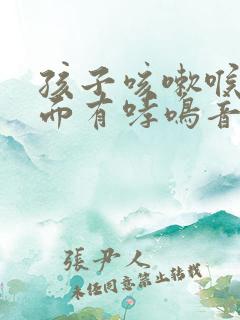 孩子咳嗽喉
而有哮鳴音
張尹人
未经同意禁止转载